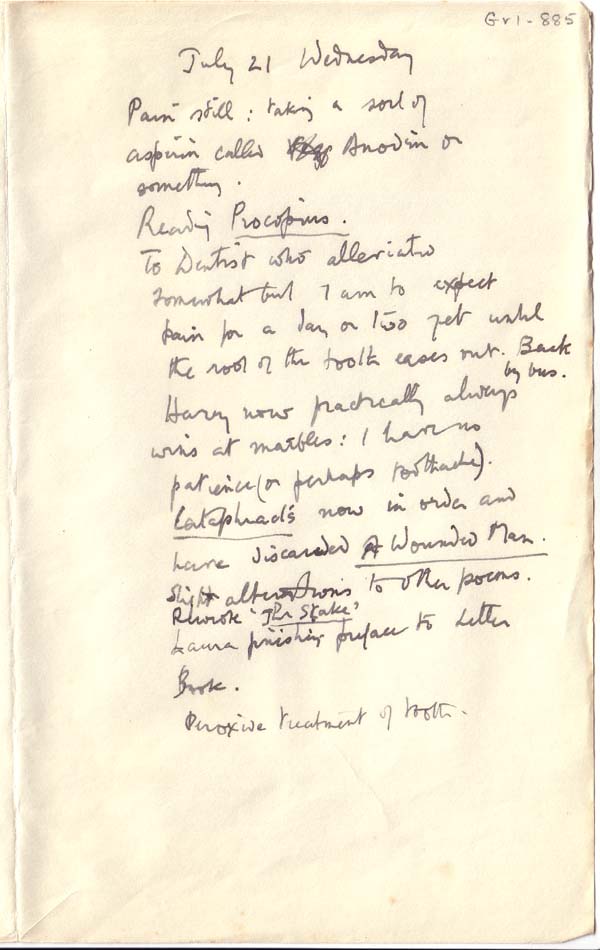 Gr1-885
July 21 Wednesday
Pain still: taking a sort of
aspirin called Anodin or
something.
Reading Procopius.
To Dentist who alleviated
somewhat but I am to expect
pain for a day or two yet until
the root of the tooth eases out. Back
by bus.
Harry now practically always
wins at marbles: I have no
patience (or perhaps toothache).
Cataphract's now in order and
have discarded A Wounded Man.
slight alterations to other poems.
Rewrote 'The Stake'
Laura finishing preface to Letter
Book.
Peroxide treatment of tooth.